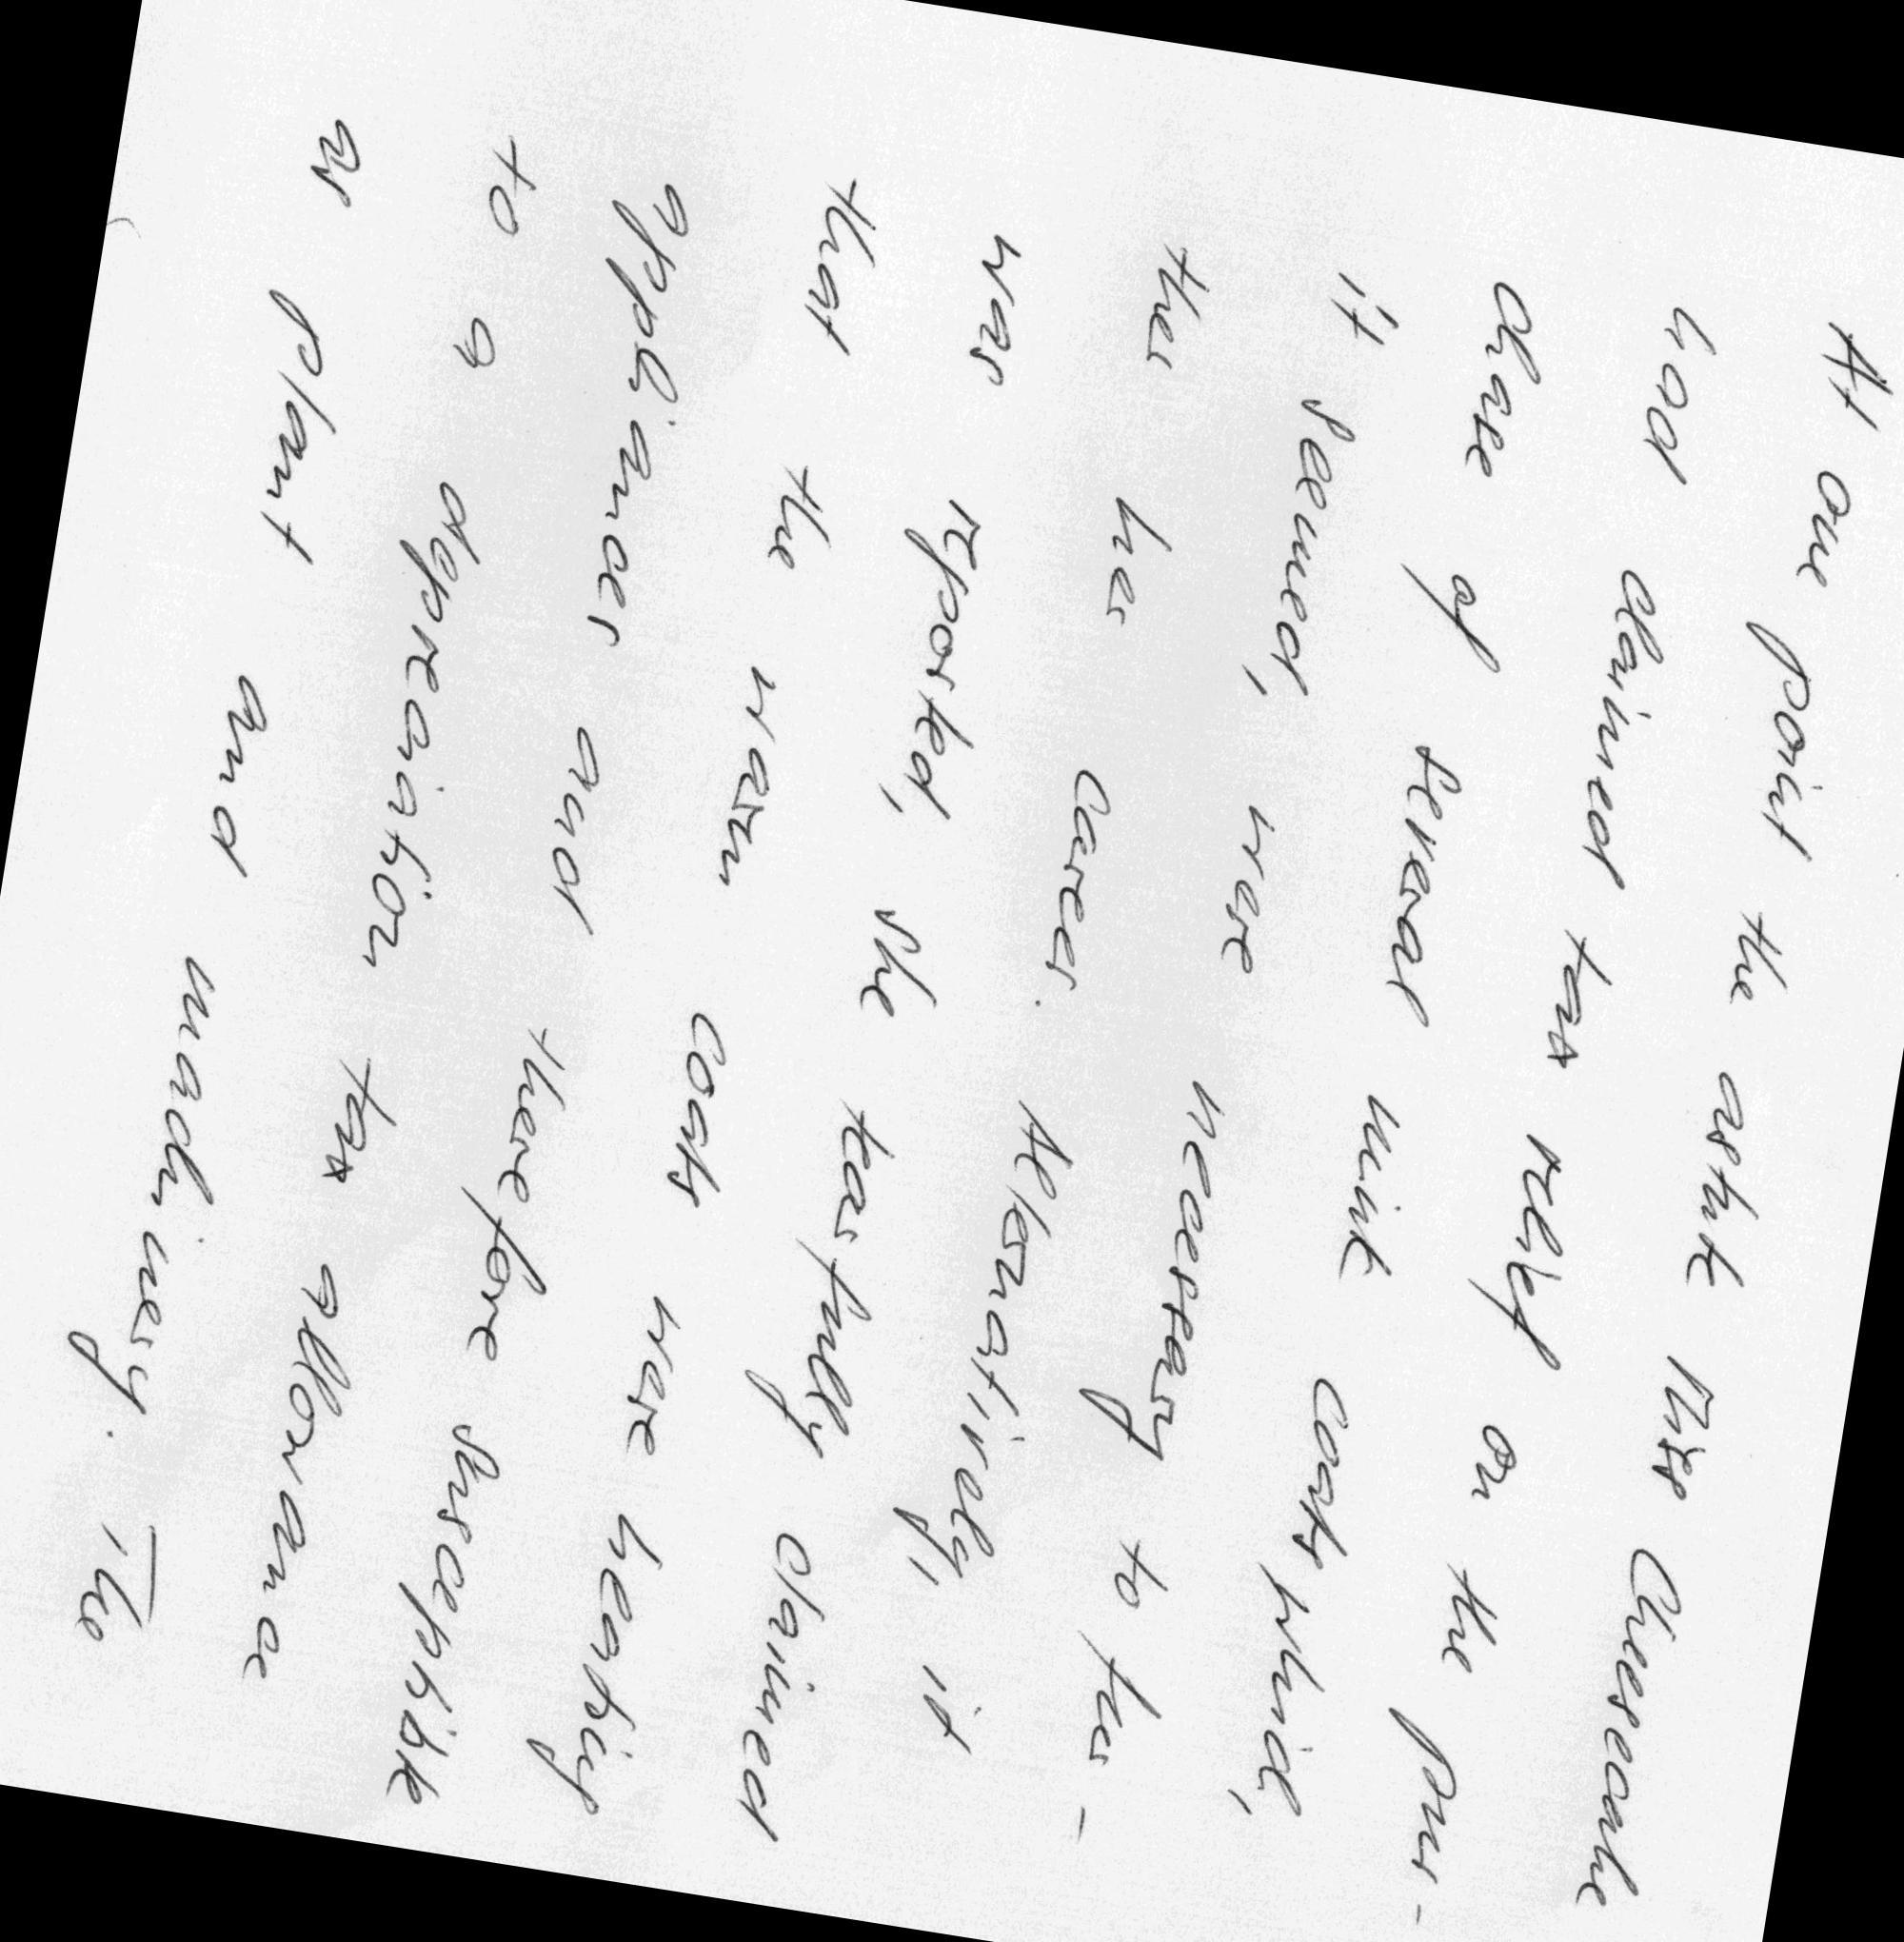 At one point the astute Miss Cheesecake
had claimed tax relief on the pur-
chase of several mink coats which,
it seemed, were necessary to fur-
ther her career. Alternatively, it
was reported, she tearfully claimed
that the warm coats were heating
appliances and therefore susceptible
to a depreciation tax allowance
as plant and machinery. The